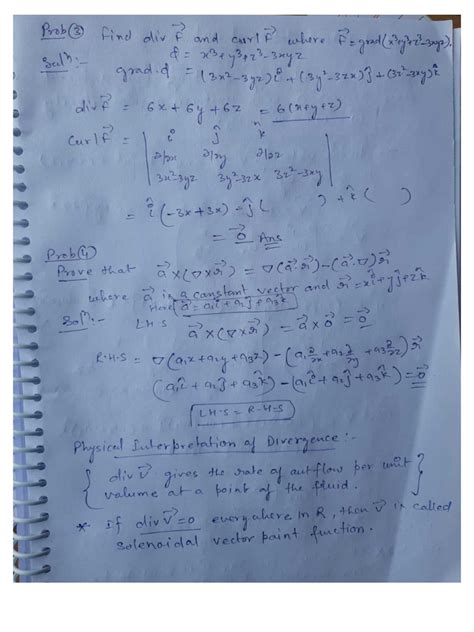 Prob(3) Find div F⃗ and curl F⃗ where F⃗=grad(x³+y³+z³-3xyz).
Sol^n:- ϕ = x³+y³+z³-3xyz
grad.ϕ = (3x²-3yz)î+(3y²-3zx)ĵ+(3z²-3xy)k̂
div F⃗ = 6x+6y+6z = 6(x+y+z)
Curl F⃗ = | î ĵ k̂
∂/∂x ∂/∂y ∂/∂z
3x²-3yz 3y²-3zx 3z²-3xy |
= î(-3x+3x)-ĵ( ) + k̂( )
= 0⃗ Ans
Prob(4)
Prove that a⃗×(∇×r⃗) = ∇(a⃗.r⃗)-(a⃗.∇)r⃗
where a⃗ is a constant vector and r⃗=xî+yĵ+zk̂
Here a⃗=a₁î+a₂ĵ+a₃k̂
Sol^n:- L.H.S a⃗×(∇×r⃗) = a⃗×0⃗ = 0⃗
R.H.S = ∇(a₁x+a₂y+a₃z)-(a₁∂/∂x+a₂∂/∂y+a₃∂/∂z)r⃗
(a₁î+a₂ĵ+a₃k̂)-(a₁î+a₂ĵ+a₃k̂)=0⃗
L.H.S = R.H.S
Physical Interpretation of Divergence:-
{ div V⃗ gives the rate of outflow per unit
volume at a point of the fluid. }
* If div V⃗=0 everywhere in R, then V⃗ is called
Solenoidal vector point function.